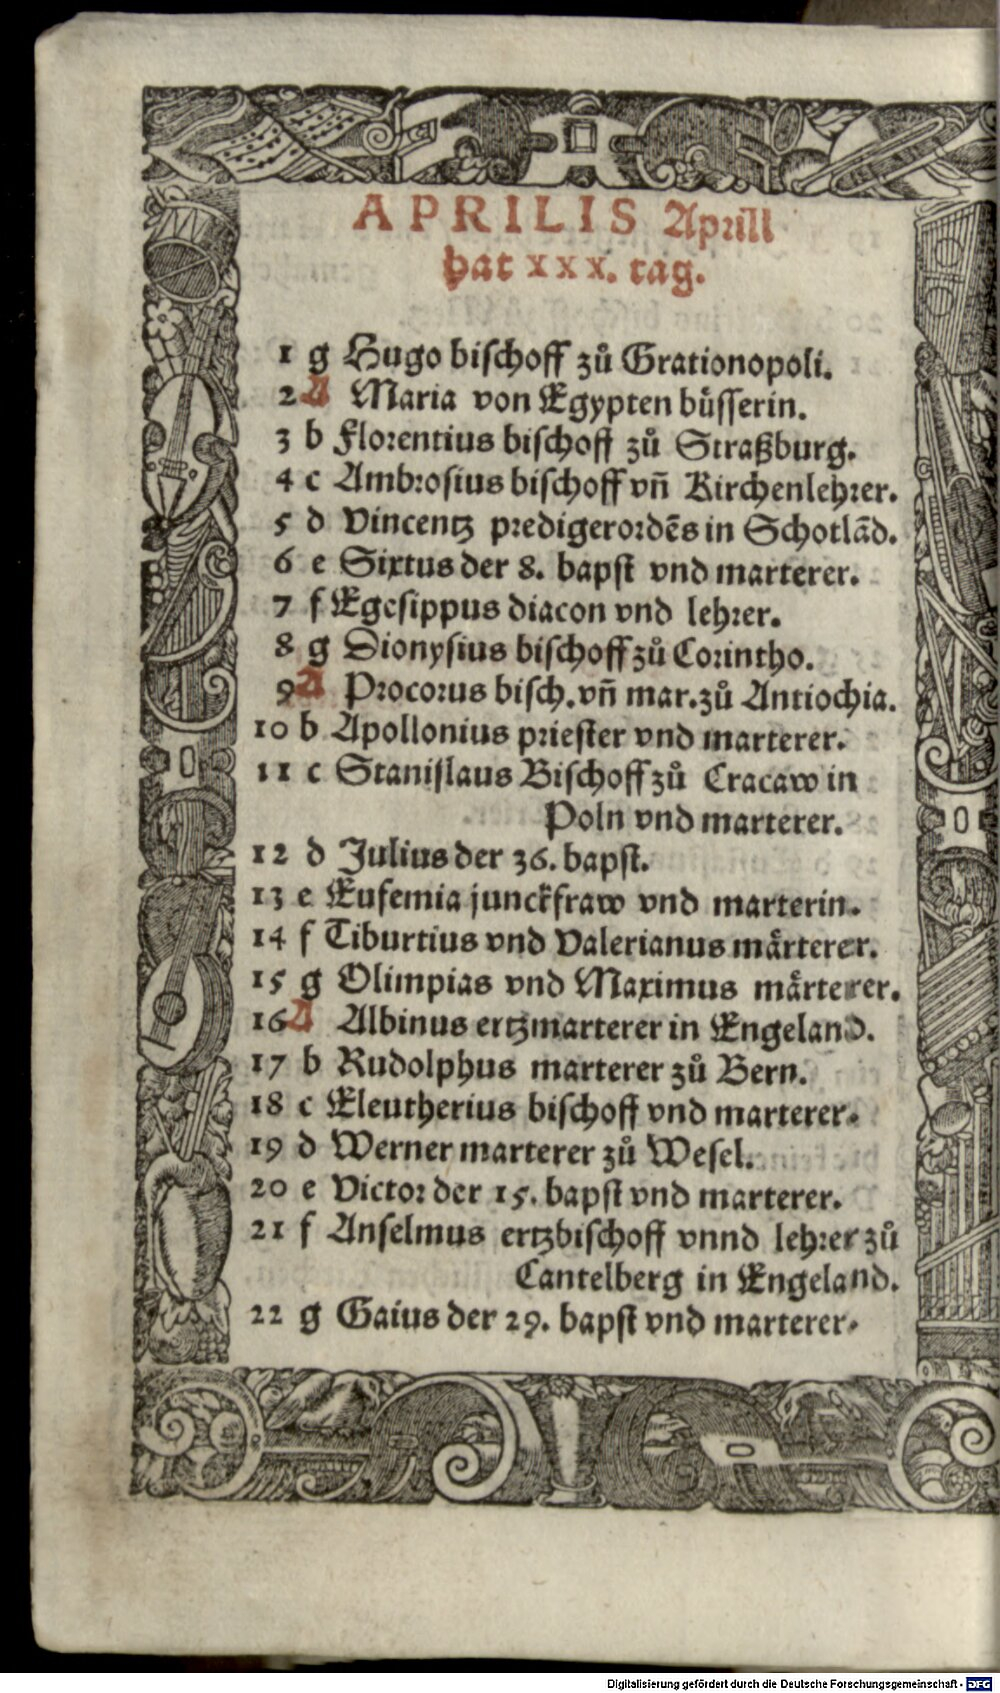 APRILIS Aprill
hat xxx. tag.
1 g Hugo bischoff zů Grationopoli.
2 A Maria von Egypten büsserin.
3 b Florentius bischoff zů Straßburg.
4 c Ambrosius bischoff vñ Kirchenlehrer.
5 d Vincentz predigerordẽs in Schotlãd.
6 e Sixtus der 8. bapst vnd marterer.
7 f Egesippus diacon vnd lehrer.
8 g Dionysius bischoff zů Corintho.
9 A Procorus bisch. vñ mar. zů Antiochia.
10 b Apollonius priester vnd marterer.
11 c Stanislaus Bischoff zů Cracaw in
Poln vnd marterer.
12 d Julius der 36. bapst.
13 e Eufemia junckfraw vnd marterin.
14 f Tiburtius vnd Valerianus märterer.
15 g Olimpias vnd Maximus märterer.
16 A Albinus ertzmarterer in Engeland.
17 b Rudolphus marterer zů Bern.
18 c Eleutherius bischoff vnd marterer.
19 d Werner marterer zů Wesel.
20 e Victor der 15. bapst vnd marterer.
21 f Anselmus ertzbischoff vnnd lehrer zů
Cantelberg in Engeland.
22 g Gaius der 29. bapst vnd marterer.
Digitalisierung gefördert durch die Deutsche Forschungsgemeinschaft - DFG